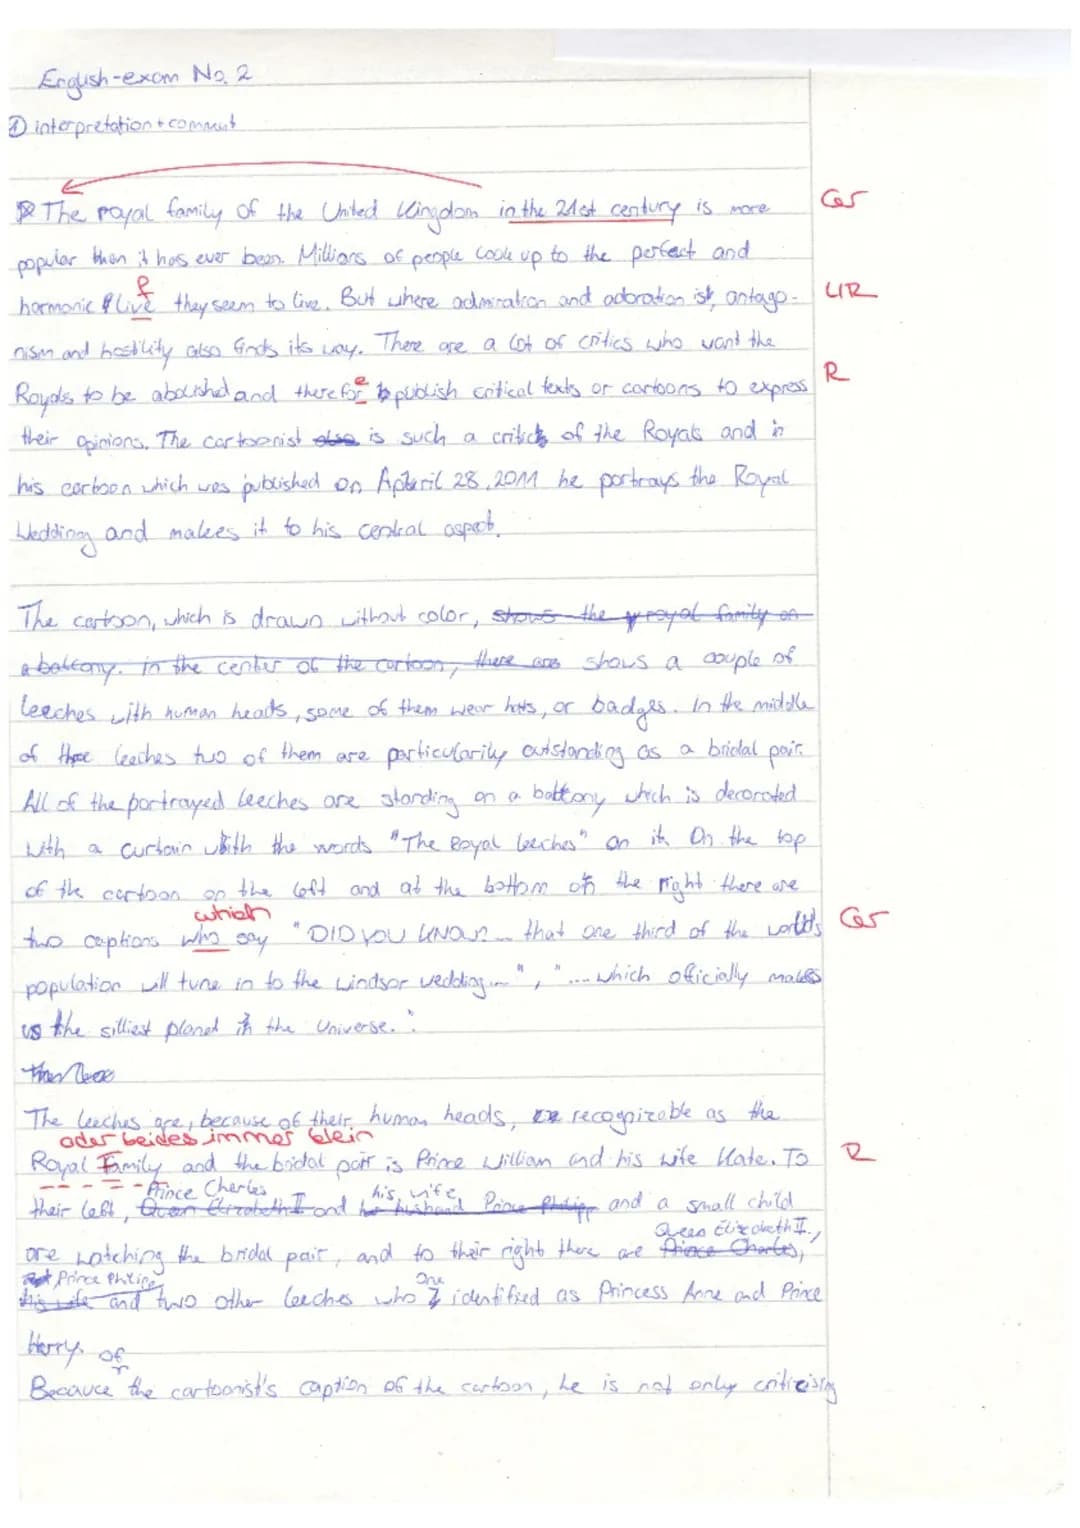 English-exam No. 2
① interpretation + comment
The royal family of the United Kingdom in the 21st century is more Gr
popular then it has ever been. Millions of people look up to the perfect and
f
harmonic live they seem to live. But where admiration and adoration is, antago- LIR
nism and hostility also finds its way. There are a lot of critics who want the
Royals to be abolished and therefore publish critical texts or cartoons to express R
their opinions. The cartoonist also is such a critic of the Royals and in
his cartoon which was published on April 28, 2011 he portrays the Royal
Wedding and makes it to his central aspect.
The cartoon, which is drawn without color, shows the royal family on
a balcony. in the center of the cartoon, there are shows a couple of
leeches with human heads, some of them wear hats, or badges. In the middle
of these leeches two of them are particularily outstanding as a bridal pair.
All of the portrayed leeches are standing on a balcony which is decorated
with a curtain with the words "The Royal Leeches" on it. On the top
of the cartoon on the left and at the bottom on the right there are
which
two captions who say "DID YOU KNOW?... that one third of the world's Gr
population will tune in to the Windsor wedding...", "... which officially makes
us the silliest planet in the Universe."
The leeches are, because of their human heads, recognizable as the
oder beides immer klein
Royal Family and the bridal pair is Prince William and his wife Kate. To R
Prince Charles his wife
their left, Queen Elizabeth II and her husband Prince Philipp and a small child
Queen Elizabeth II.,
are watching the bridal pair, and to their right there are Prince Charles,
Prince Philipp are
his wife and two other leeches who identified as Princess Anne and Prince
Harry.
of
Because the cartoonist's caption of the cartoon, he is not only criticising